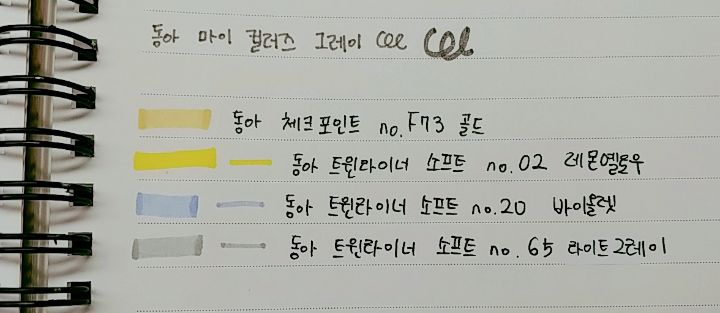 동아 마이 컬러즈 그레이 cee cee
동아 체크포인트 no.F73 골드
동아 트윈라이너 소프트 no.02 레몬옐로우
동아 트윈라이너 소프트 no.20 바이올렛
동아 트윈라이너 소프트 no.65 라이트그레이